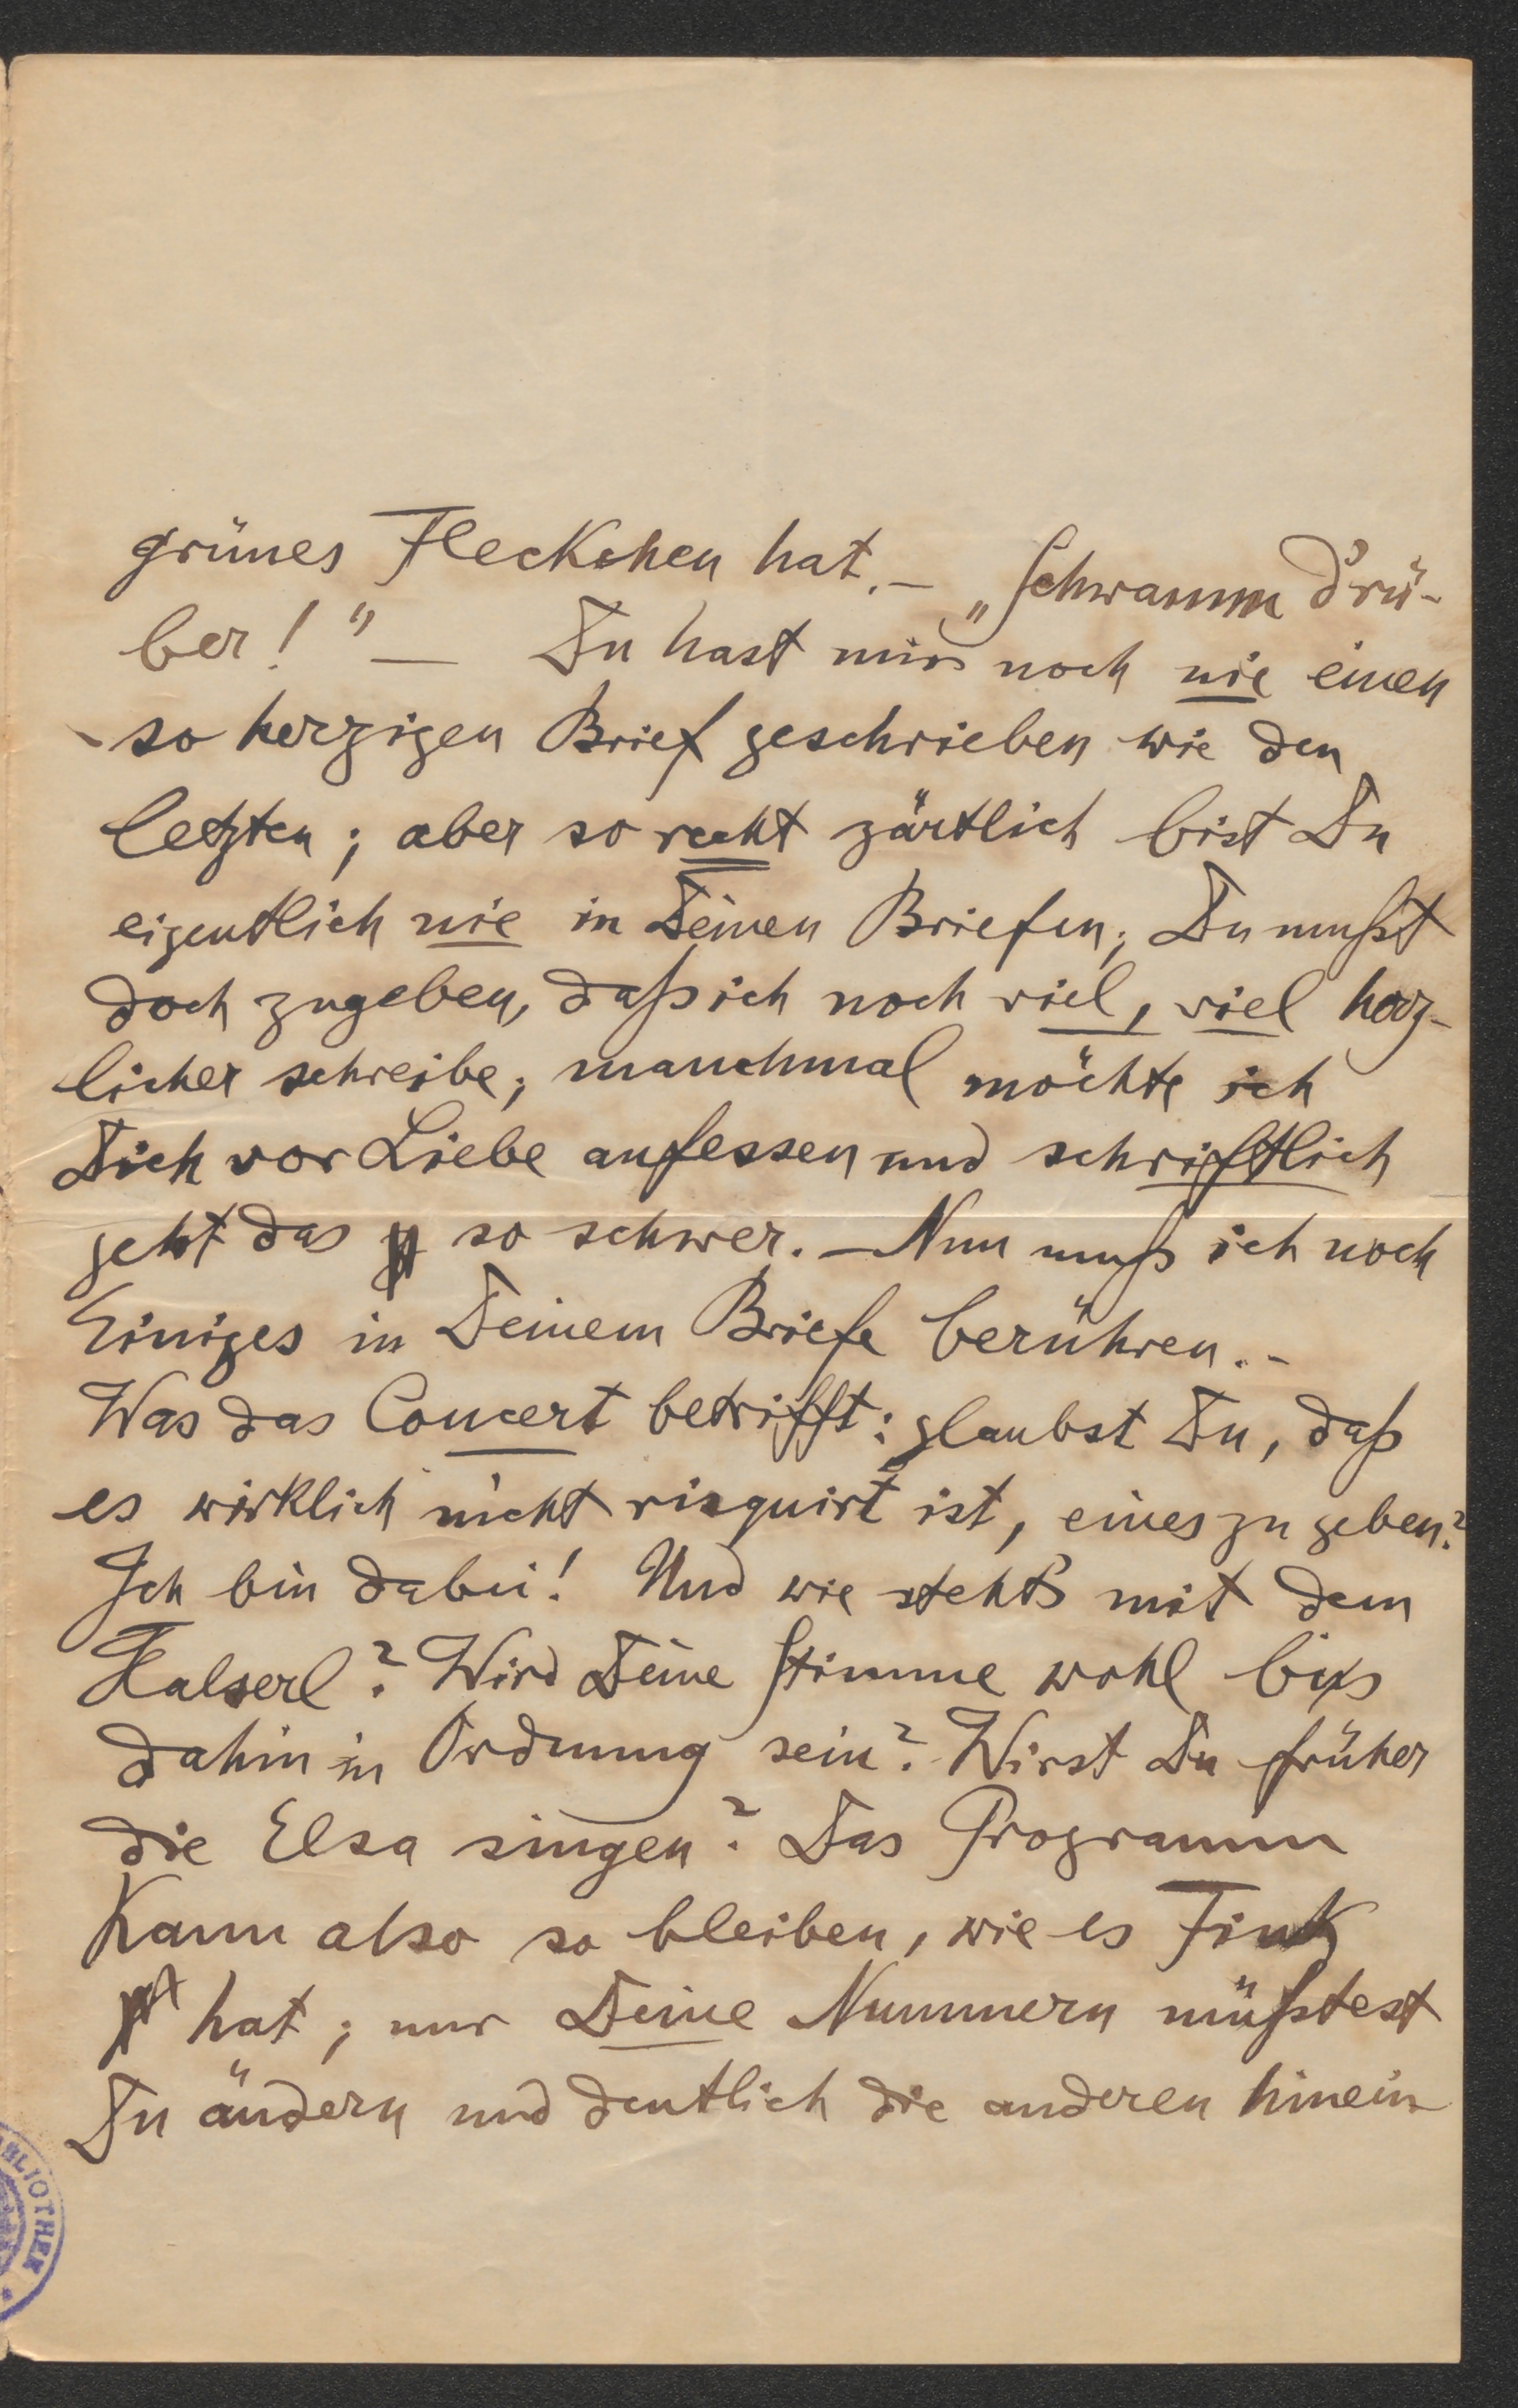 grünes Fleckchen hat. – „Schwamm d'rü-
ber!" – Du hast mir noch nie einen
so herzigen Brief geschrieben wie den
letzten; aber so recht zärtlich bist Du
eigentlich nie in Deinen Briefen; Du mußt
doch zugeben, daß ich noch viel, viel herz-
licher schreibe; manchmal möchte ich
Dich vor Liebe aufessen und schriftlich
geht das so schwer. – Nun muß ich noch
Einiges in Deinem Briefe berühren. –
Was das Concert betrifft: glaubst Du, daß
es wirklich nicht risquirt ist, eines zu geben?
Ich bin dabei! Und wie steht's mit dem
Halserl? Wird Deine Stimme wohl bis
dahin in Ordnung sein? Wirst Du früher
die Elsa singen? Das Programm
kann also so bleiben, wie es Fink
hat; nur Deine Nummern müßtest
Du ändern und deutlich die anderen hinein
BLIOTHEK